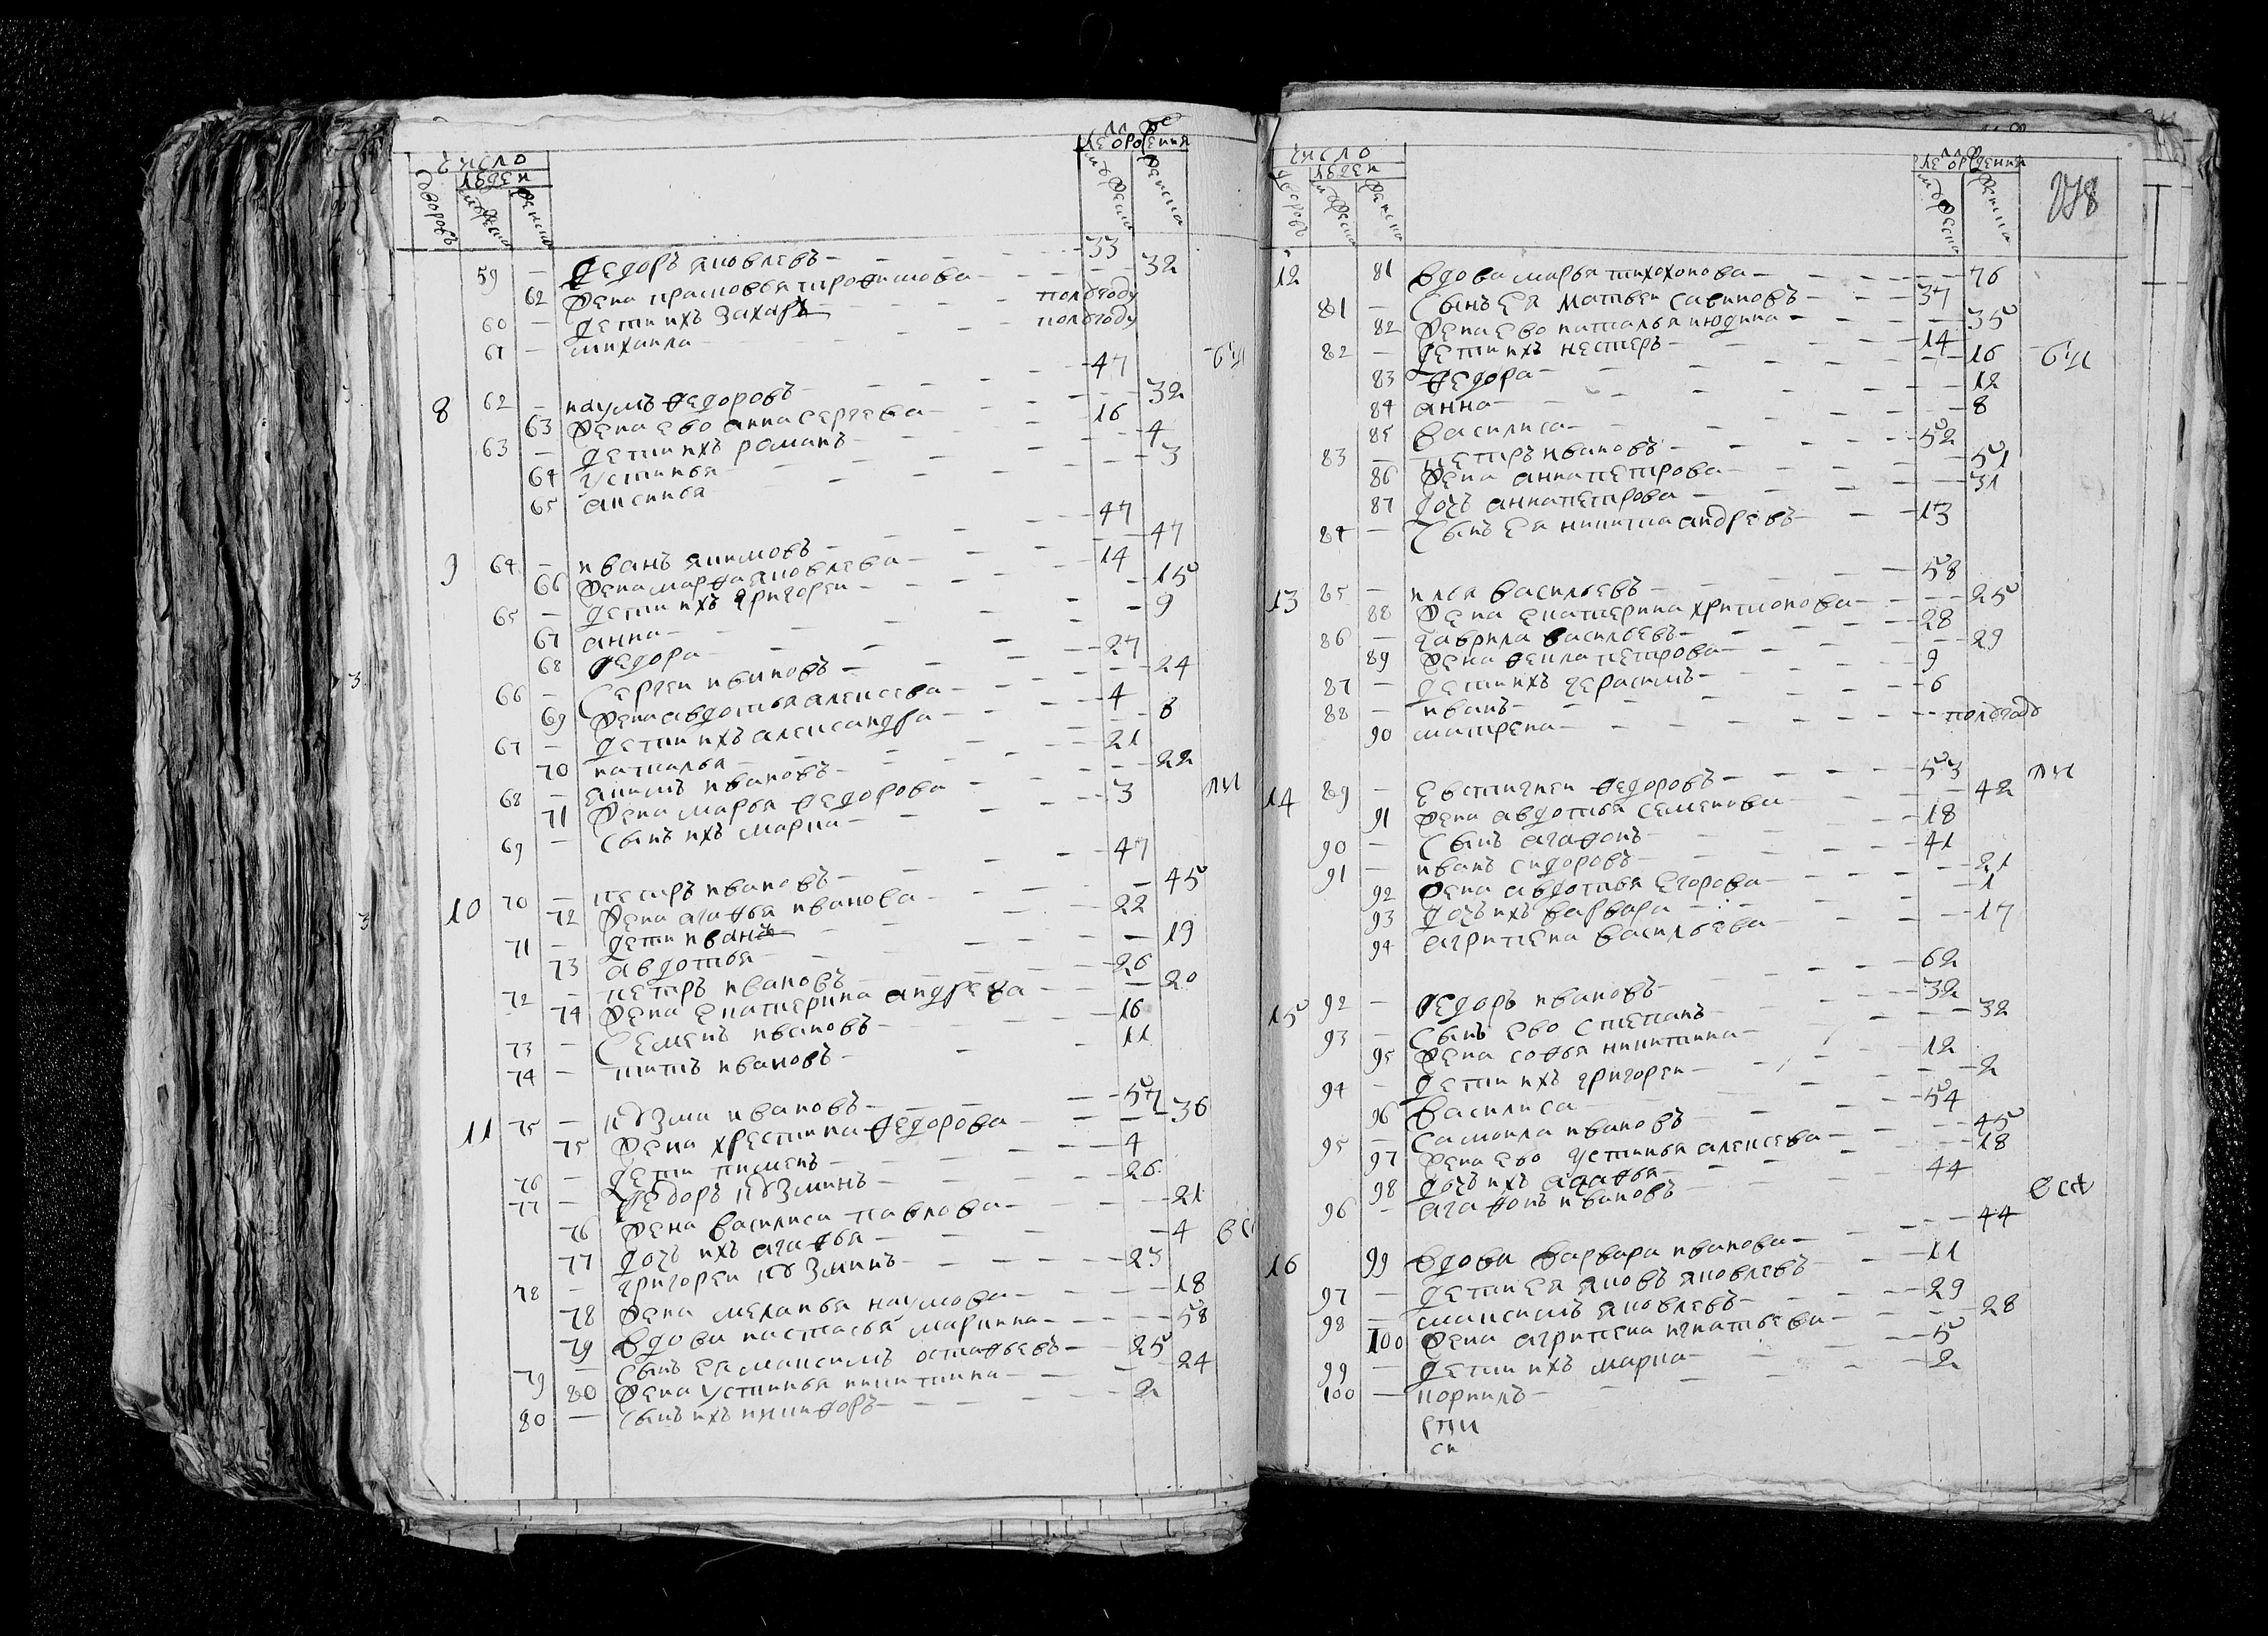 число
людеи
дворовъ
мужеска
женска
лето рождения
мужеска
женска
59 — федоръ яковлевъ — 33
62 жена прасковья трофимова — 32
60 — дети ихъ захаръ — полъгоду
61 — михаила — полъгоду
8 62 — наумъ федоровъ — 47
63 жена ево анна сергеева — 32
63 — дети ихъ романъ — 16
64 устинья — 4
65 аксинья — 3
9 64 — иванъ якимовъ — 47
66 жена марфа яковлева — 47
65 — дети ихъ григореи — 14
67 анна — 15
68 федора — 9
66 — сергеи ивановъ — 27
69 жена авдотья алексева — 24
67 — дети ихъ александра — 4
70 наталья — 8
68 — якимъ ивановъ — 21
71 жена марья федорова — 22
69 — сынъ ихъ марка — 3
10 70 — петръ ивановъ — 47
72 жена агафья иванова — 45
71 — дети иванъ — 22
73 авдотья — 19
72 — петръ ивановъ — 26
74 жена екатерина андрева — 20
73 — семенъ ивановъ — 16
74 — титъ ивановъ — 11
11 75 — кузма ивановъ — 57
75 жена христина федорова — 36
76 — дети пименъ — 4
77 — федоръ кузминъ — 26
76 жена василиса павлова — 21
77 дочь ихъ агафья — 4
78 — григореи кузминъ — 23
78 жена меланья наумова — 18
79 вдова настасья маркина — 58
79 — сынъ ея максимъ остафьевъ — 25
80 жена устинья никитина — 24
80 — сынъ ихъ никифоръ — 2
число
людеи
дворовъ
мужеска
женска
лето рождения
мужеска
женска
278
12 81 вдова марья тихохонова — 76
81 — сынъ ея матвеи савиновъ — 37
82 жена ево наталья юдина — 35
82 — дети ихъ нестеръ — 14
83 федора — 16
84 анна — 12
85 василиса — 8
83 — петръ ивановъ — 52
86 жена анна петрова — 51
87 дочь анна петрова — 31
84 — сынъ ея никита андревъ — 13
13 85 — илья васильевъ — 58
88 жена екатерина харитонова — 25
86 — гаврила васильевъ — 28
89 жена фекла петрова — 29
87 — дети ихъ герасимъ — 9
88 — иванъ — 6
90 матрена — полъгоду
14 89 — евстигнеи федоровъ — 53
91 жена авдотья семенова — 42
90 — сынъ агафонъ — 18
91 — иванъ сидоровъ — 41
92 жена авдотья егорова — 21
93 дочь ихъ варвара — 1
94 агрипена васильева — 17
15 92 — федоръ ивановъ — 62
93 — сынъ ево степанъ — 32
95 жена софья никитина — 32
94 — дети ихъ григореи — 12
96 василиса — 2
95 — самоила ивановъ — 54
97 жена ево устинья алексева — 45
98 дочь ихъ агафья — 18
96 — агафонъ ивановъ — 44
16 99 вдова варвара иванова — 44
97 — дети ея яковъ яковлевъ — 11
98 — максимъ яковлевъ — 29
100 жена агрипена игнатьева — 28
99 — дети ихъ марка — 5
100 — корнилъ — 2